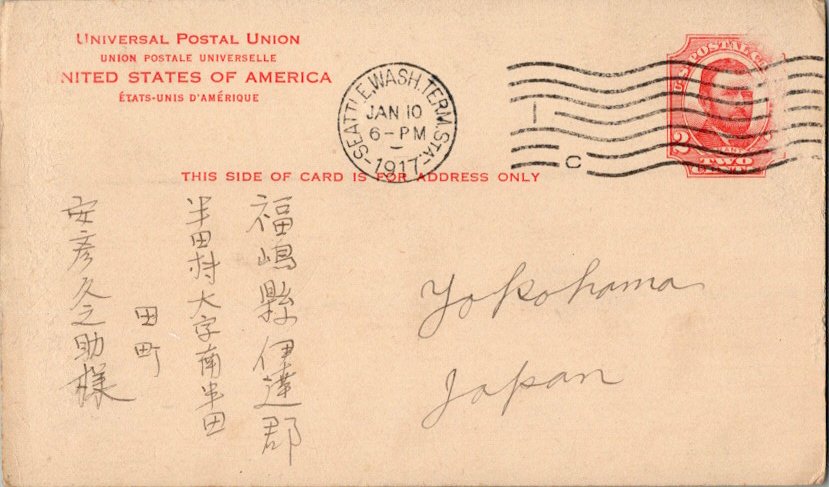 UNIVERSAL POSTAL UNION
UNION POSTALE UNIVERSELLE
UNITED STATES OF AMERICA
ÉTATS-UNIS D'AMÉRIQUE
SEATTLE, WASH. TERM. STA.
JAN 10
6-PM
1917
C
U.S. POSTAL
2
TWO
THIS SIDE OF CARD IS FOR ADDRESS ONLY
福嶋縣伊達郡
半田村大字南半田
田町
安彦久之助様
Yokohama
Japan